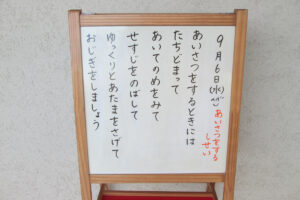 9月6日(水)
あいさつをする
しせい
あいさつをするときには
たちどまって
あいてのめをみて
せすじをのばして
ゆっくりとあたまをさげて
おじぎをしましょう